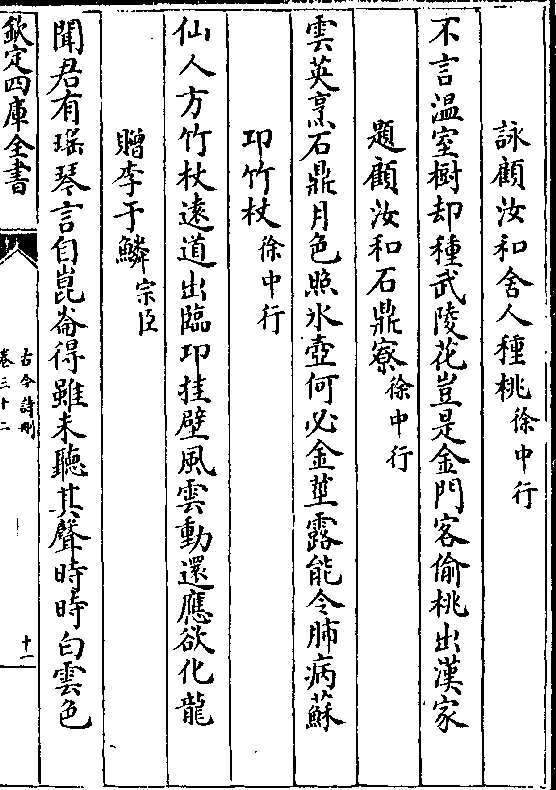 詠顧汝和舍人種桃徐中行
不言溫室樹却種武陵花豈是金門客偷桃出漢家
題顧汝和石鼎寮徐中行
雲英烹石鼎月色照氷壺何必金莖露能令肺病蘇
卭竹杖徐中行
仙人方竹杖遠道出臨卭挂壁風雲動還應欲化龍
贈李于鱗宗臣
聞君有瑶琴言自崑崙得雖未聽其聲時時白雲色
欽定四庫全書
古今詩刪
卷三十二
十一